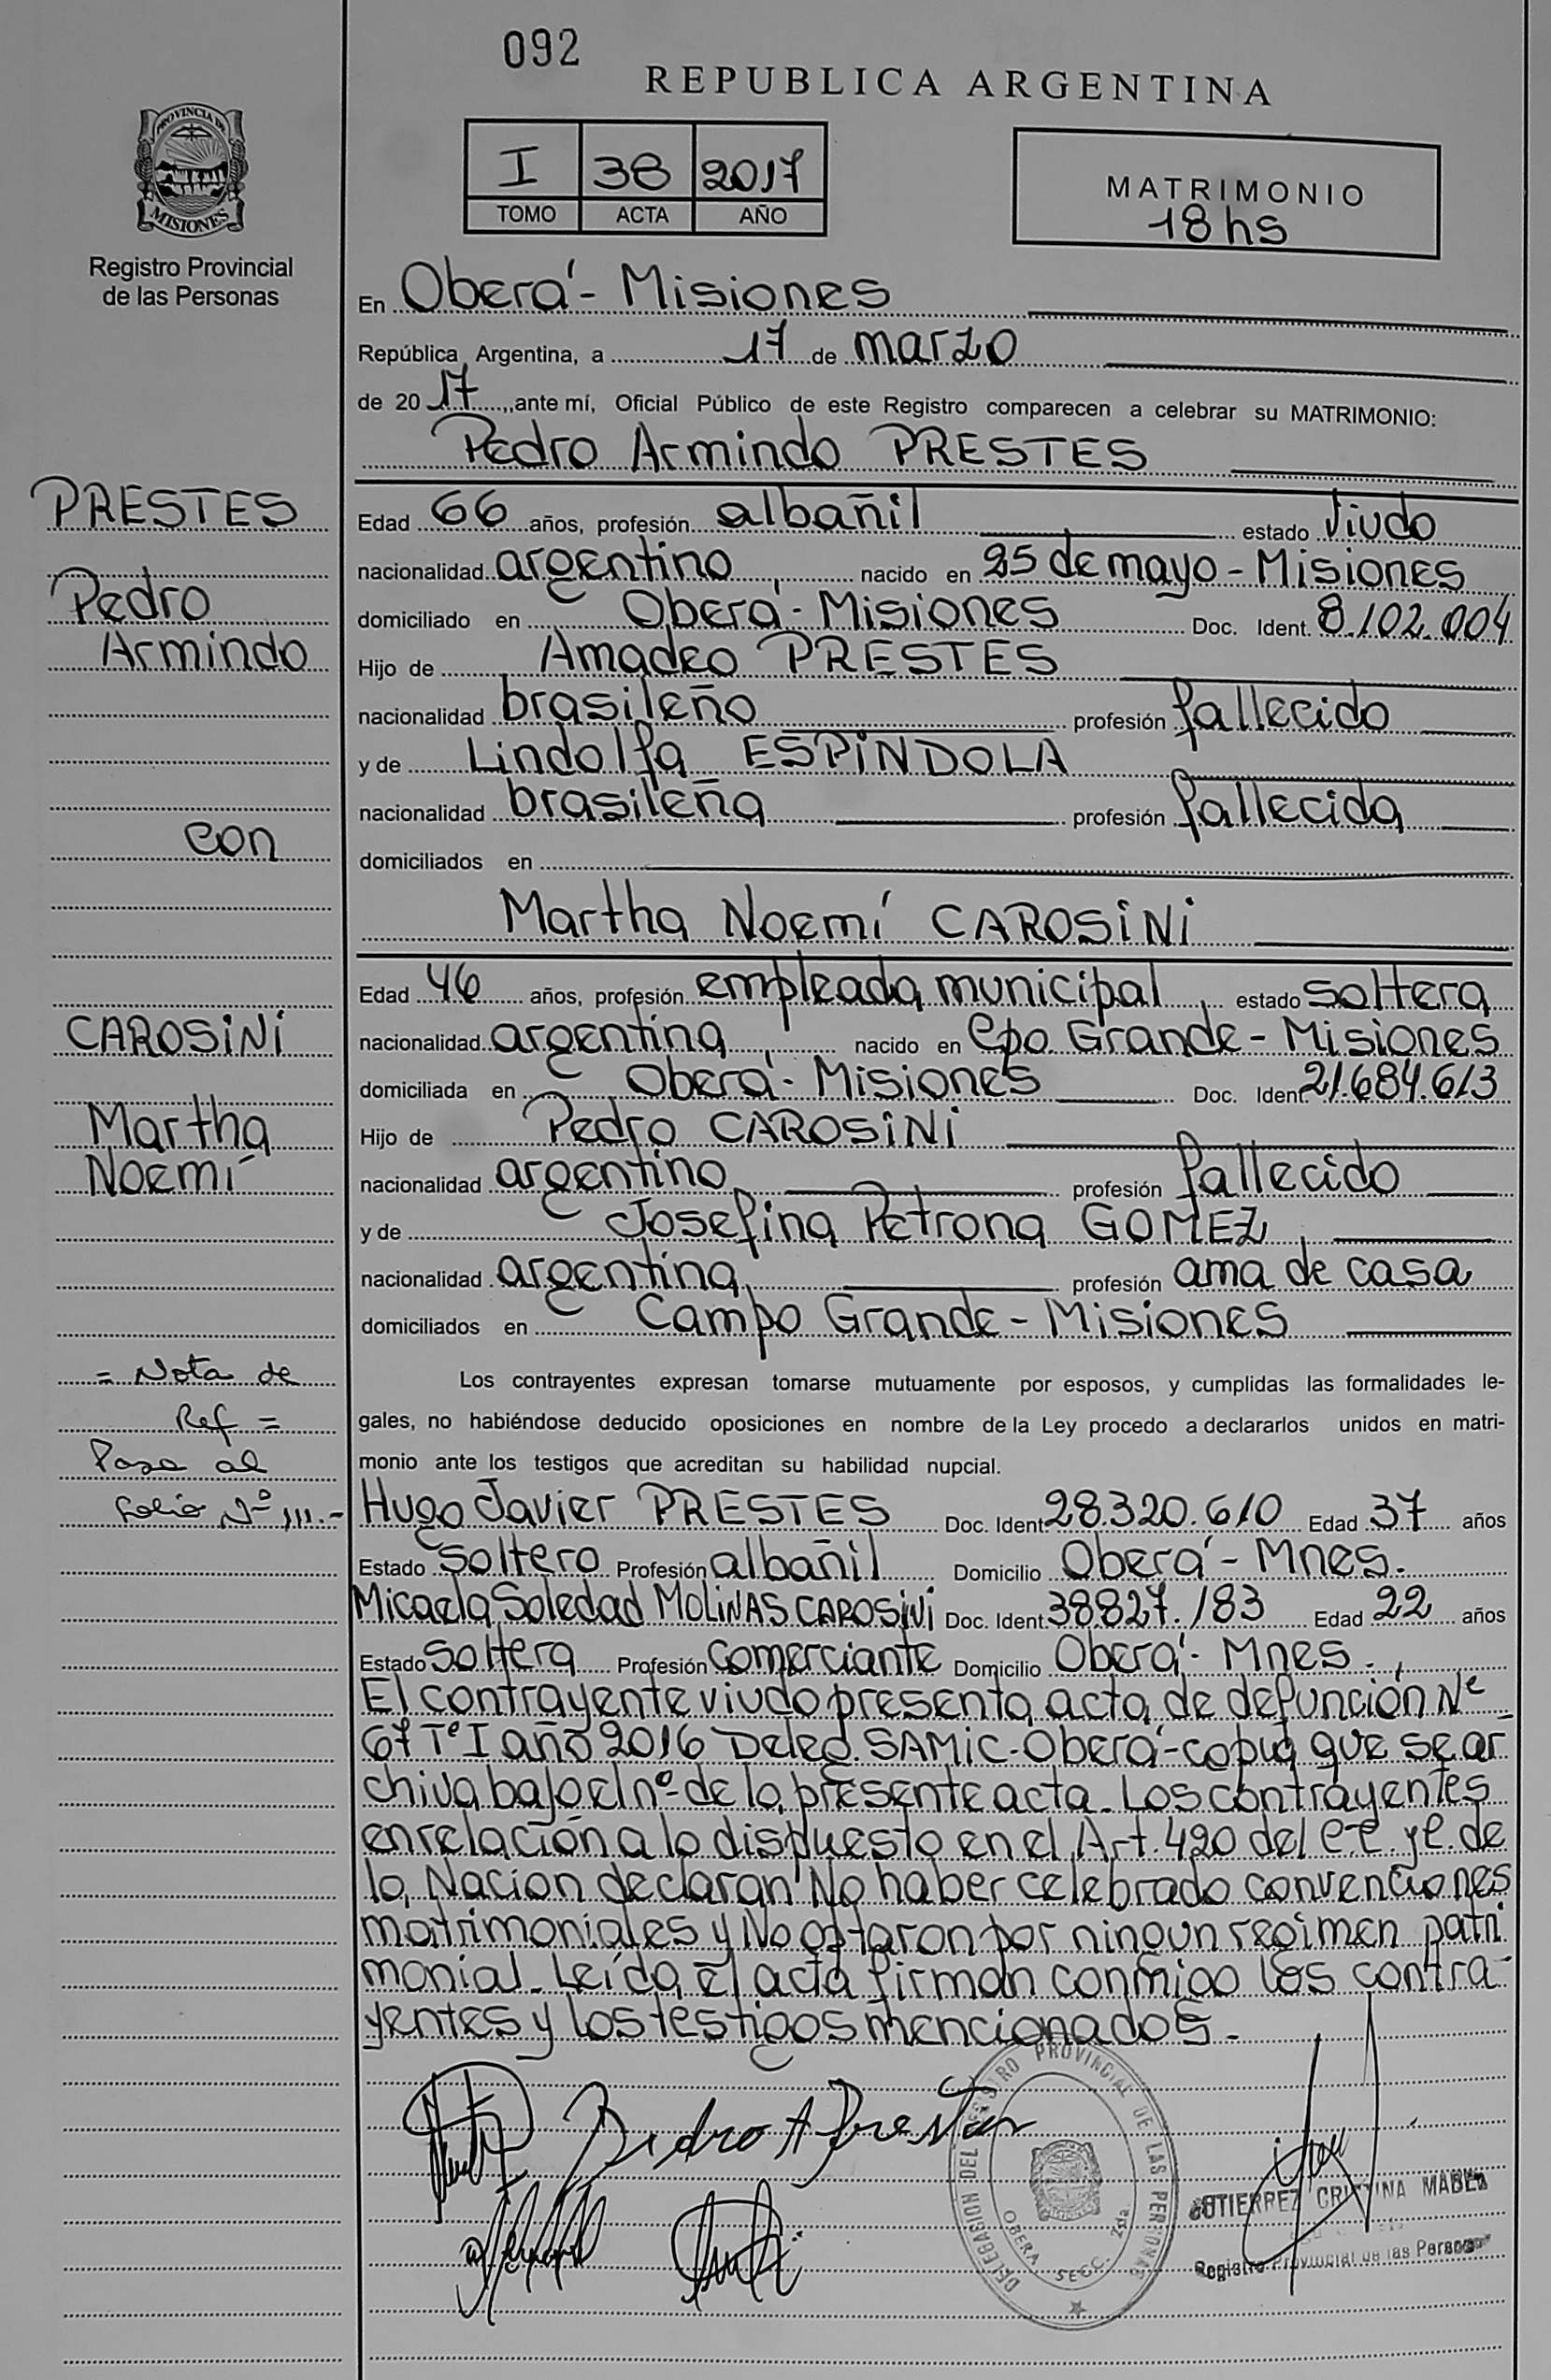 092
REPUBLICA ARGENTINA
PROVINCIA DE
MISIONES
Registro Provincial
de las Personas
I 38 2017
TOMO ACTA AÑO
MATRIMONIO
18 hs
En Oberá - Misiones
República Argentina, a 17 de marzo
de 20 17, ante mí, Oficial Público de este Registro comparecen a celebrar su MATRIMONIO:
Pedro Armindo PRESTES
PRESTES
Pedro
Armindo
con
CAROSINI
Martha
Noemí
= Nota de
Ref =
Pasa al
folio Nº 111.-
Edad 66 años, profesión albañil estado viudo
nacionalidad argentino, nacido en 25 de mayo - Misiones
domiciliado en Oberá - Misiones Doc. Ident. 8.102.004
Hijo de Amadeo PRESTES
nacionalidad brasileño profesión fallecido
y de Lindolfa ESPINDOLA
nacionalidad brasileña profesión fallecida
domiciliados en
Martha Noemí CAROSINI
Edad 46 años, profesión empleada municipal, estado soltera
nacionalidad argentina, nacido en Cpo Grande - Misiones
domiciliada en Oberá - Misiones Doc. Ident. 21.684.613
Hijo de Pedro CAROSINI
nacionalidad argentino profesión fallecido
y de Josefina Petrona GOMEZ,
nacionalidad argentina profesión ama de casa
domiciliados en Campo Grande - Misiones
Los contrayentes expresan tomarse mutuamente por esposos, y cumplidas las formalidades le-
gales, no habiéndose deducido oposiciones en nombre de la Ley procedo a declararlos unidos en matri-
monio ante los testigos que acreditan su habilidad nupcial.
Hugo Javier PRESTES Doc. Ident. 28.320.610 Edad 37 años
Estado soltero Profesión albañil Domicilio Oberá - Mnes.
Micaela Soledad MOLINAS CAROSINI Doc. Ident. 38827.183 Edad 22 años
Estado soltera Profesión comerciante Domicilio Oberá - Mnes.,
El contrayente viudo presenta acta de defunción Nº
67 Tº I año 2016 Deleg. SAMIC - Oberá - copia que se ar
chiva bajo el nº de la presente acta. Los contrayentes
en relación a lo dispuesto en el Art. 420 del C.C. y C. de
la Nacion declaran No haber celebrado convenciones
matrimoniales y No optaron por ningun regimen patri
monial. Leída el acta firman conmigo los contra-
yentes y los testigos mencionados.-
Pedro A Prestes
DELEGACION DEL REGISTRO PROVINCIAL DE LAS PERSONAS
OBERA SECC. 2da
GUTIERREZ CRISTINA MABEL
Registro Provincial de las Personas